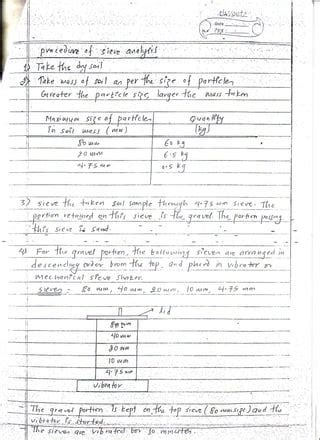 CLASSMATE
Date
Page
procedure of sieve analysis
1) Take the dry soil
2) Take mass of soil as per the size of particles
Greater the particle size, larger the mass taken
Maximum size of particles Quantity
in soil mass (mm) (kg)
80 mm 60 kg
20 mm 6.5 kg
4.75 mm 0.5 kg
3) sieve the taken soil sample through 4.75 mm sieve. The
portion retained on this sieve is the gravel The portion passing
this sieve is sand.
4) For the gravel portion, the following sieves are arranged in
descending order from the top, and placed in vibrator or
mechanical sieve shaker.
sieves - 80 mm, 40 mm, 20 mm, 10 mm, 4.75 mm
lid
80 mm
40 mm
20 mm
10 mm
4.75 mm
vibrator
- The gravel portion is kept on the top sieve (80 mm size) and the
vibrator is started.
- The sieves are vibrated for 10 minutes.